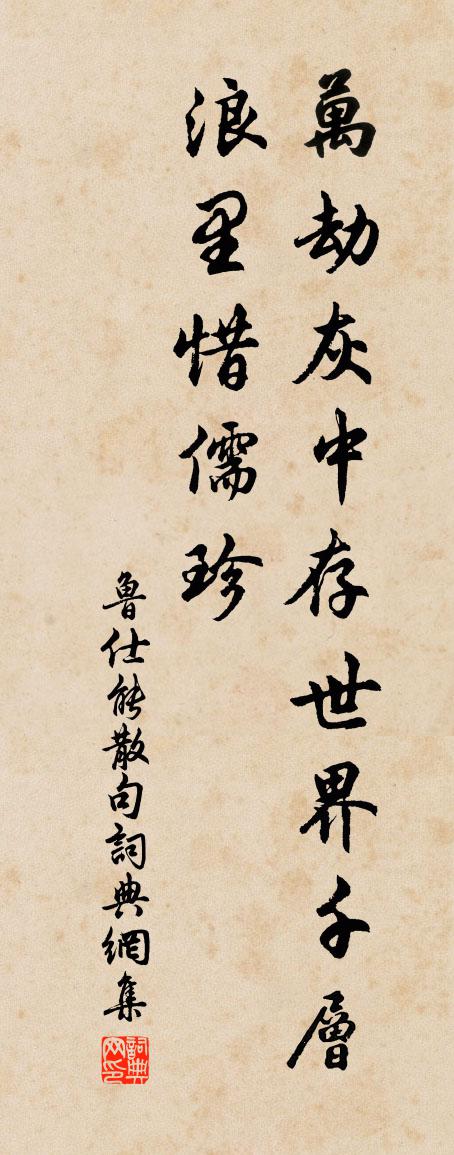 萬劫灰中存世界千層
浪里惜儒珍
魯仕能散句詞典網集
詞典网印